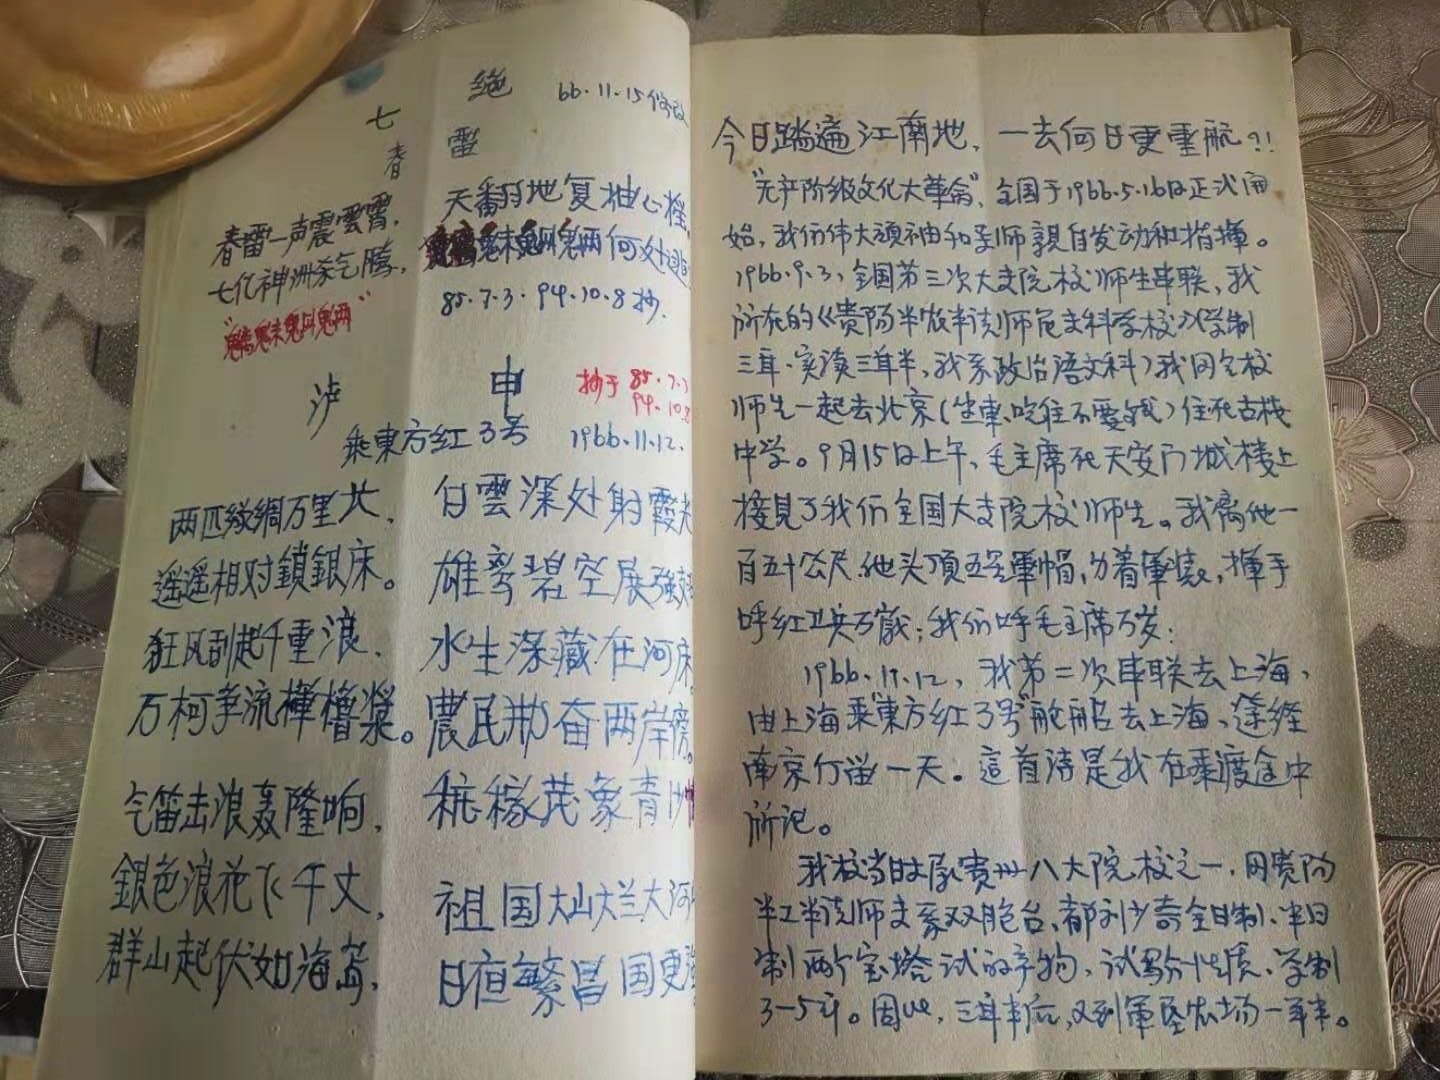 七 绝 66.11.15修改
春 雷
春雷一声震雲霄, 天翻地复神心摇,
七亿神洲杀气腾, 魑魅魍魉何处逃
"魑魅魍魉" 85.7.3. 94.10.8抄.
沪 申 抄于 85.7.3
94.10.8
乘東方红3号 1966.11.12.
两匹绿绸万里长, 白雲深处射霞光
遥遥相对鎖銀床。 雄鹰碧空展強翅
狂风刮起千重浪, 水生深藏在河床
石柯争流樺櫓槳。 農民勤奋两岸傍。
气笛击浪轰隆响, 稼茂象青沙
銀色浪花飞千丈, 祖国大山大兰大河
群山起伏如海岛, 日夜繁昌国更
今日踏遍江南地, 一去何日更重航?!
"无产阶级文化大革命", 全国于1966.5.16日正式開
始, 我们伟大領袖和导师親自发动和指揮。
1966.9.3, 全国第三次大专院校师生串联, 我
所在的《贵阳半农半读师范文科学校》(学制
三年·实读三年半, 我系政治语文科)我同全校
师生一起去北京(坐車、吃住不要钱)住在古栈
中学。9月15日上午, 毛主席在天安门城楼上
接見了我们全国大专院校师生。我离他一
百五十公尺. 他头顶五星軍帽, 身着軍装, 揮手
呼红卫兵万歲; 我们呼毛主席万岁;
1966.11.12, 我第二次串联去上海,
由上海乘"東方红3号"舵船去上海, 途经
南京行留一天。這首诗是我在乘渡途中
所记。
我校当时属贵州八大院校之一, 同贵阳
半工半读师专系双胞台, 都刘少奇全日制、半日
制两个宝塔试的产物, 试點性质, 学制
3-5年。因此, 三年半后, 又到軍垦农场一年半。